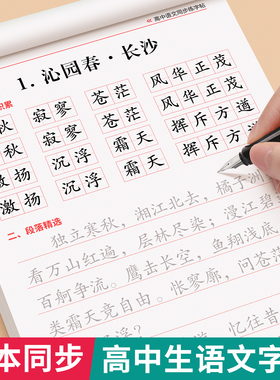 高中语文同步练字帖
1.沁园春·长沙
积累
秋 寂寥 苍茫 风华正茂
秋 寂寥 苍茫 风华正茂
激扬 沉浮 霜天 挥斥方遒
激扬 沉浮 霜天 挥斥方遒
二、段落精选
独立寒秋，湘江北去，橘子洲
看万山红遍，层林尽染；漫江碧
百舸争流。鹰击长空，鱼翔浅底，
类霜天竞自由。怅寥廓，问苍茫
忆往昔
本同步
高中生语文字